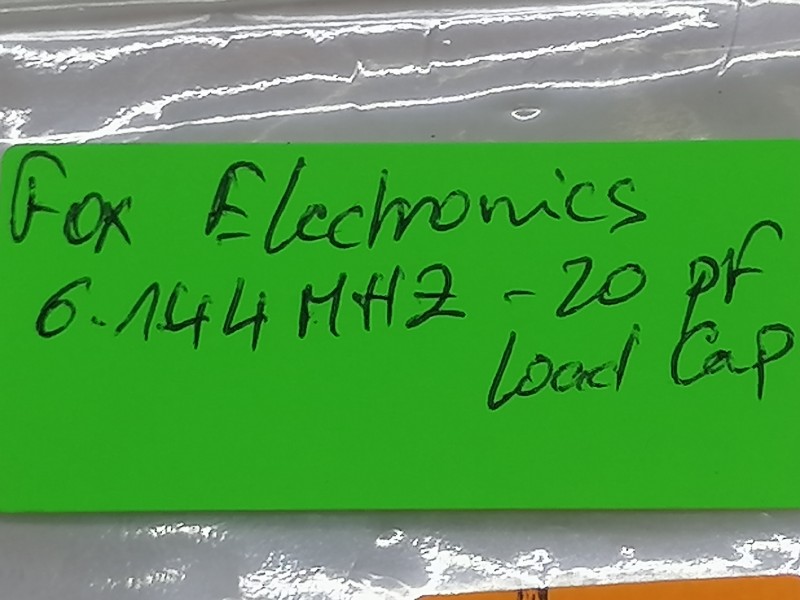 Fox Electronics
6.144 MHZ - 20 pF
Load Cap